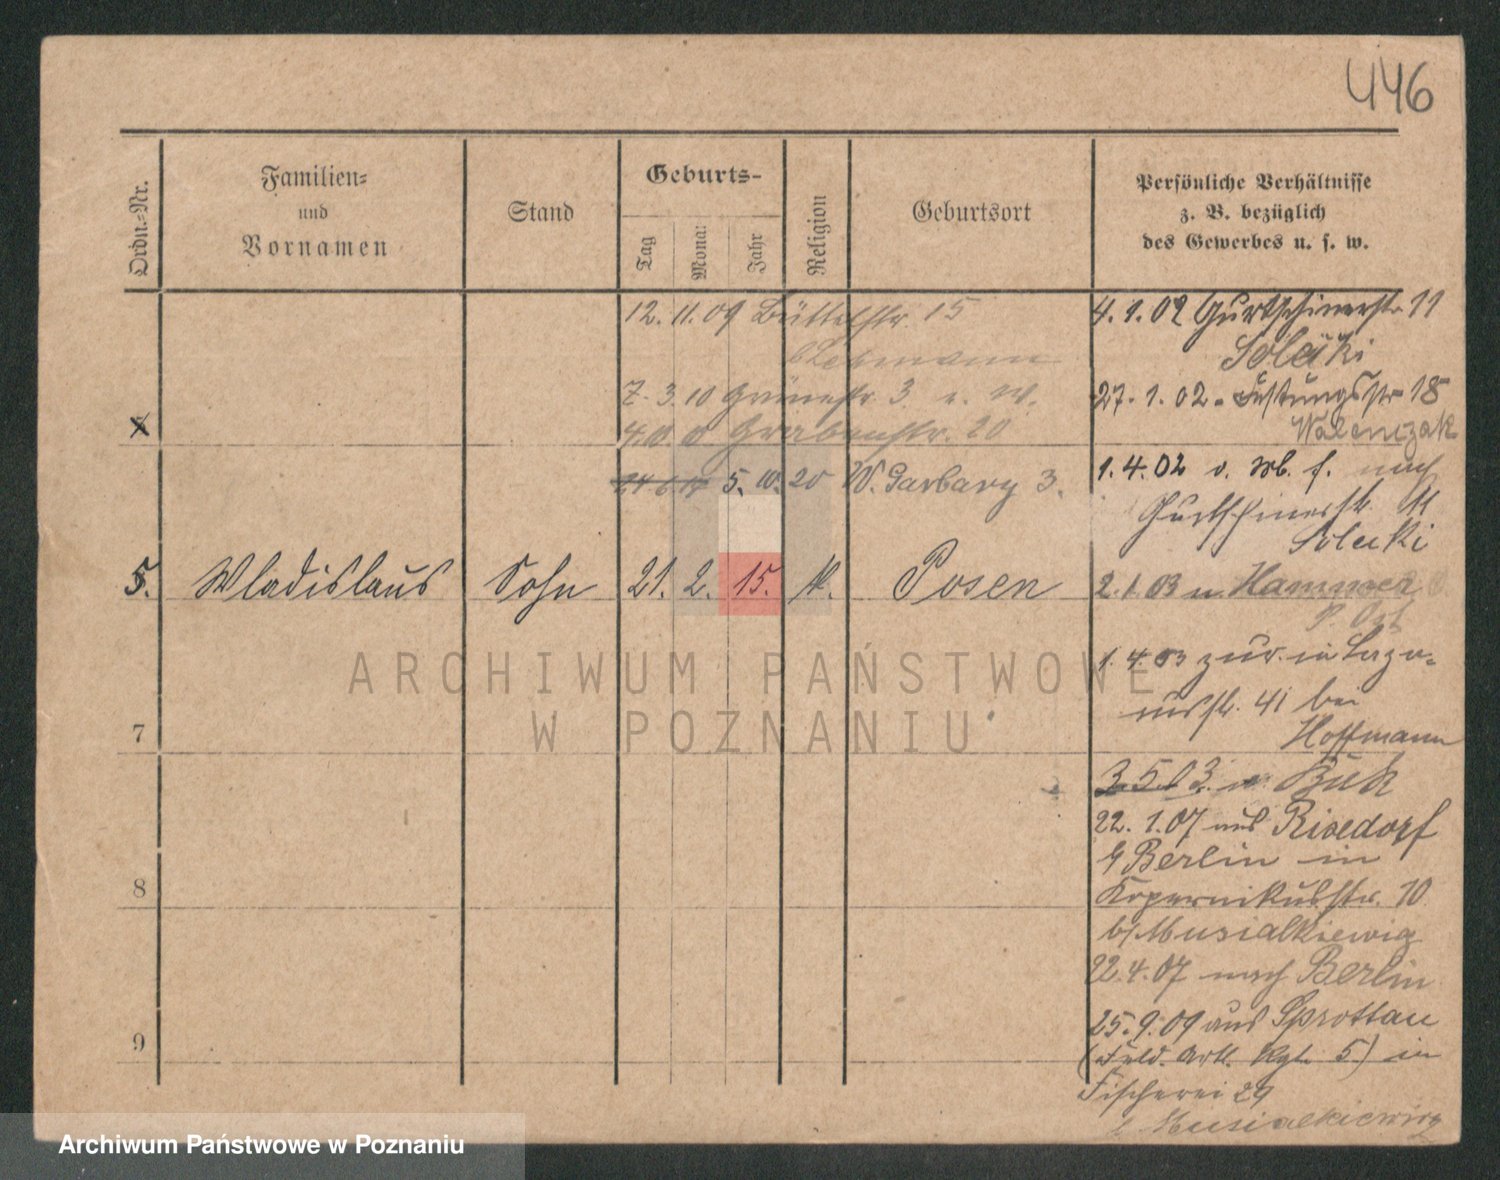 446
Ordn.-Nr.
Familien-
und
Vornamen
Stand
Geburts-
Tag
Mona:
Jahr
Religion
Geburtsort
Persönliche Verhältnisse
z. B. bezüglich
des Gewerbes u. s. w.
12. 11. 09 Büttelstr. 15
b/Lehmann
7. 3. 10 Grünestr. 3
Grabenstr. 20
5. 10. 20 W. Garbary 3.
5. Wladislaus Sohn 21. 2. 15. k. Posen
7
8
9
4. 1. 02 Gurtschinerstr. 11
Solecki
27. 1. 02. Festungsstr. 18
Walenczak
1. 4. 02 v. nach
Gurtschinerstr. 11
Solecki
2. 1. 03 n. Hammer
P. Ost
1. 4. 03 zur. in Laza-
russtr. 41 bei
Hoffmann
3. 5. 03. n. Buk
22. 1. 07 aus Rixdorf
b/Berlin in
Kopernikusstr. 10
b/Musialkiewicz
22. 4. 07 nach Berlin
25. 9. 09 aus Sprottau
(Feld. Artl. Rgt. 5) in
Fischerei 29
b. Musialkiewicz
ARCHIWUM PAŃSTWOWE
W POZNANIU
Archiwum Państwowe w Poznaniu